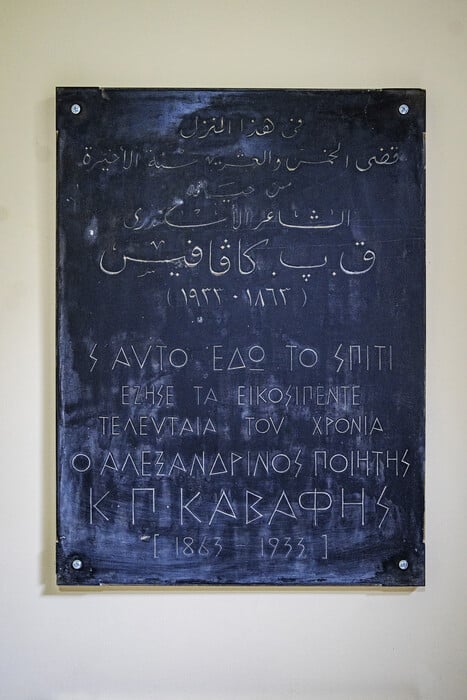 في هذا المنزل
قضى الخمس والعشرين سنة الأخيرة
من حياته
الشاعر الأسكندرى
ق. پ. كاڤافيس
( ١٨٦٣ - ١٩٣٣ )
Σ ΑΥΤΟ ΕΔΩ ΤΟ ΣΠΙΤΙ
ΕΖΗΣΕ ΤΑ ΕΙΚΟΣΙΠΕΝΤΕ
ΤΕΛΕΥΤΑΙΑ ΤΟΥ ΧΡΟΝΙΑ
Ο ΑΛΕΞΑΝΔΡΙΝΟΣ ΠΟΙΗΤΗΣ
Κ · Π · ΚΑΒΑΦΗΣ
[ 1863 - 1933 ]